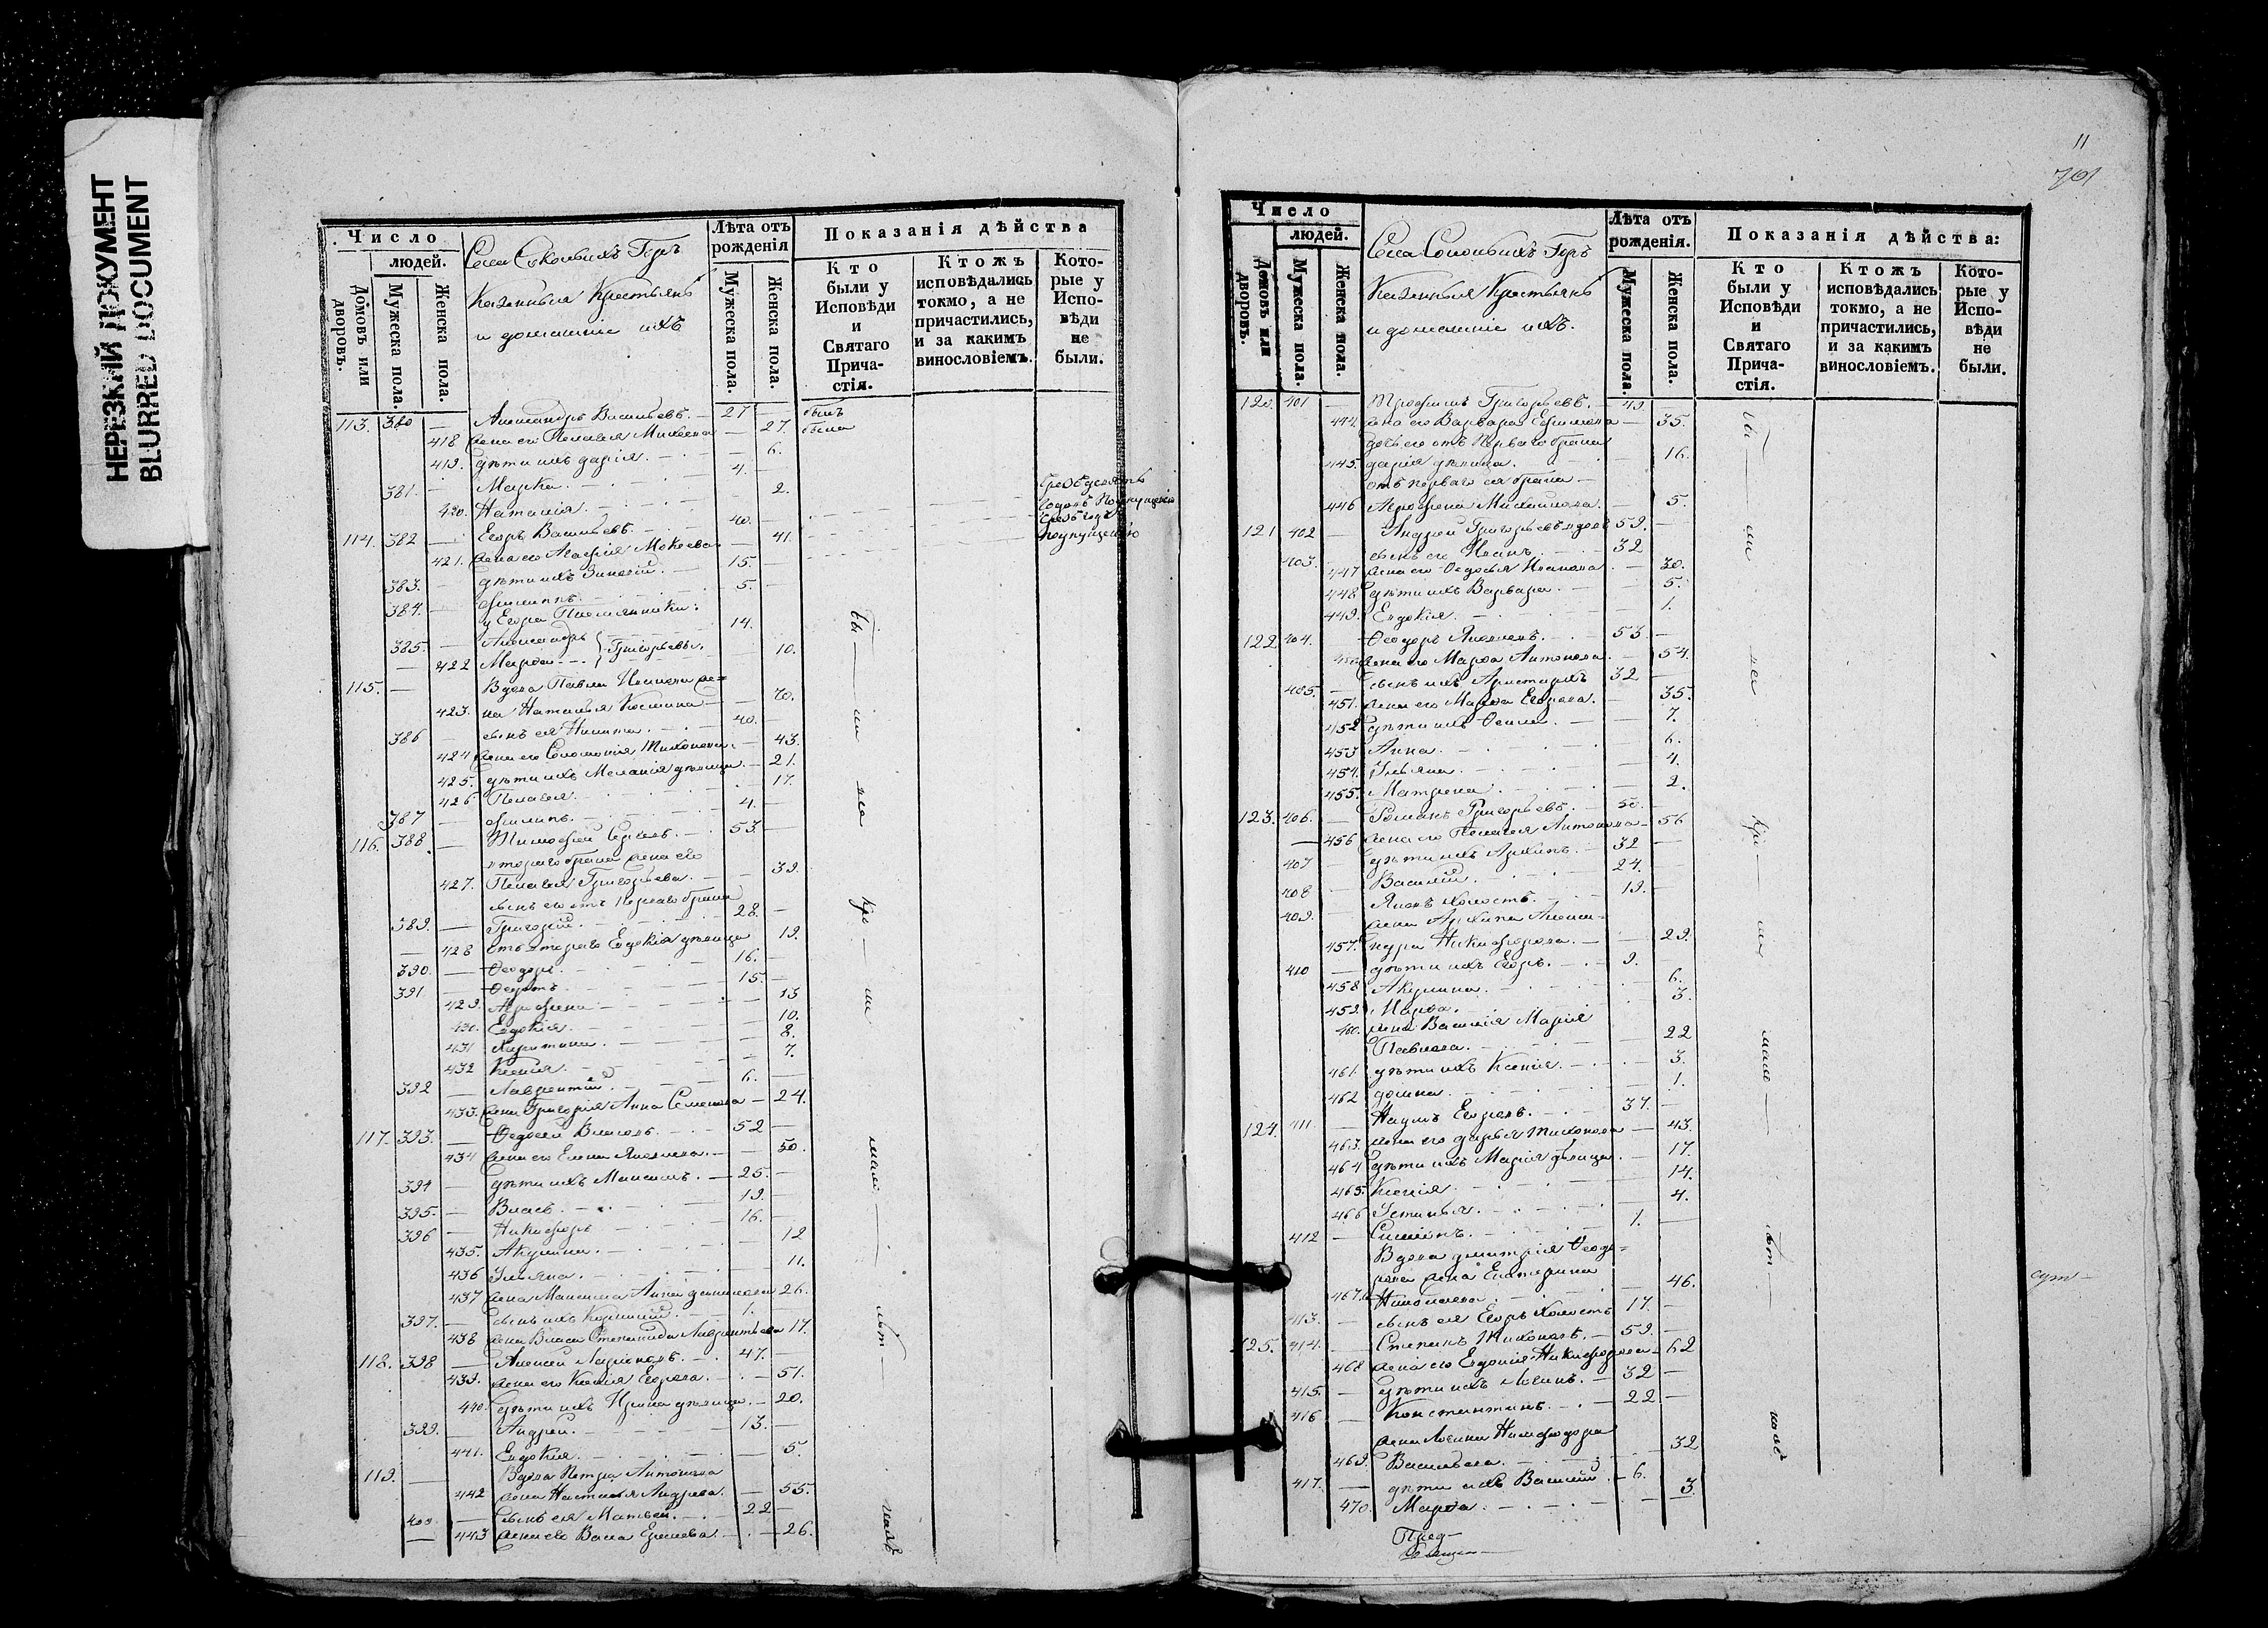 НЕРЕЗКИЙ ДОКУМЕНТ
BLURRED DOCUMENT
Число
людей.
Домовъ или дворовъ.
Мужеска пола.
Женска пола.
Села Сокольихъ Горъ
Казенныя Крестьянѣ
и домашніе ихъ
Лѣта отъ рожденія
Мужеска пола.
Женска пола.
Показанія дѣйства
Кто были у Исповѣди и Святаго Прича-стія.
Ктожъ исповѣдались токмо, а не причастились, и за какимъ винословіемъ.
Кото-рые у Испо-вѣди не были.
113. 380 — Александръ Васильевъ. — 27 — былъ
418 жена его Пелагея Михеева — 27. была
419. дѣти ихъ Дарія. — 6.
381. — Марка. 4.
420. Наталія. 2.
114. 382 — Егоръ Васильевъ. 40.
421. жена его Агафія Мокеева 41.
383. — дѣти ихъ Зиновій. 15.
384. — Филиппъ. 5.
у Егора Племянники:
385. — Александръ 14.
Григорьевы.
422 Марфа 10.
115. — Вдова Павла Иванова же=
423. на Наталья Козмина 70.
386 — сынъ ея Никита. 40.
424 жена его Соломонія Тихонова. 43.
425. дѣти ихъ Меланія дѣвица. 21.
426 Пелагея 17.
387 — Филипъ. 4.
116. 388. — Тимофей 53.
втораго брака жена его
427. Пелагея Григорьева. 39.
сынъ его отъ перваго брака
389. — Григорій. 28.
428 отъ втораго Евдокія дѣвица 19.
390. — Ѳеодоръ. 16.
391 — Ѳедотъ. 15.
429. Агрофена 13
430. Евдокія. 10.
431 Харитина 8.
432 Ксенія. 7.
392 — Лаврентій. 6.
433. жена Григорія Анна Семенова — 24.
117. 393. — Ѳедосей Власовъ. 52
434 жена его Елена Яковлева. 50.
394 — дѣти ихъ Максимъ. — 25.
395. — Власъ. 19.
396 — Никифоръ 16.
435. Акулина. 12
436 Ульяна. 11.
437 жена Максима Анна Данилова 26.
397. — сынъ ихъ 1.
438 жена Власа Степанида Лаврентьева 17.
118. 398 — Алексей Ларіоновъ. 47.
439. жена его Ксенія Егорова. 51.
440. дѣти ихъ Ирина дѣвица. — 20.
399. — Андрей. 13.
441. Евдокія. 5.
119. — Вдова Петра Антонова
442 жена Настасья Андреева. 55.
400 — сынъ ея Матвей. 22
443 жена его Васа 26.
Чрезъ девять
чрезъ годъ
бы — ли — на — крс — ми — мало — лѣт — ною
11
701
Число
людей.
Домовъ или дворовъ.
Мужеска пола.
Женска пола.
Села Сокольихъ Горъ
Казенныя Крестьянѣ
и домашніе ихъ.
Лѣта отъ рожденія.
Мужеска пола.
Женска пола.
Показанія дѣйства:
Кто были у Исповѣди и Святаго Прича-стія.
Ктожъ исповѣдались токмо, а не причастились, и за какимъ винословіемъ.
Кото-рые у Испо-вѣди не были.
120. 401 — Трофимъ Григорьевъ. 49.
444. жена его Варвара Ефимова 35.
дочь его отъ перваго брака
445. Дарія дѣвица. 16.
отъ перваго ея брака —
446 Агрофена Михайлова. 5.
121 402 — Андрей Григорьевъ вдовъ 59.
403. сынъ его Иванъ. 32
447 жена его Ѳедосья Иванова. 30.
448 дѣти ихъ Варвара. 5.
449. Евдокія. 1.
122 404. Ѳеодоръ Яковлевъ. 53
450 жена его Марфа Антонова. 54.
405. — сынъ ихъ 32
451. жена его Марфа Егорова. 35.
452 дѣти ихъ Ѳекла. 7.
453 Анна. 6.
454. Ульяна. 4.
455. Матрена. 2.
123. 406. — Романъ Григорьевъ. — 50.
456 жена его Пелагея Антонова 56
407 — дѣти ихъ Архипъ. — 32
408 — Василій. 24.
409. — Яковъ холостъ. 19.
жена Архипа Алекса-
457. ндра Никифорова. — 29.
410 — дѣти ихъ Егоръ. 9.
458 Акулина. 6.
459. Марфа. 3.
460. жена Василія Марія
Павлова. 22
461. дѣти ихъ Ксенія. 3.
462 Домна. 1.
124. 411. — Наумъ Егоровъ. 37.
463. жена его Дарья Тихонова 43.
464 дѣти ихъ Марія дѣвица. 17.
465. Ксенія. 14.
466 Устинья. 4.
412 — 1.
Вдова Дмитрія Ѳеодо=
рова жена Екатерина
467. Николаева 46.
413. — сынъ ея Егоръ холостъ 17.
125. 414. — Степанъ Тихоновъ. — 59.
468 жена его Евдокія Никифорова — 62
415. — дѣти ихъ Логинъ. — 32
416 — Константинъ. 22
жена Логина Нимфодора
469. Васильева. 32
417. — дѣти ихъ Василій 6.
470. Марфа 3.
бы — ли — на — крс — ми — мало — лѣт — ною